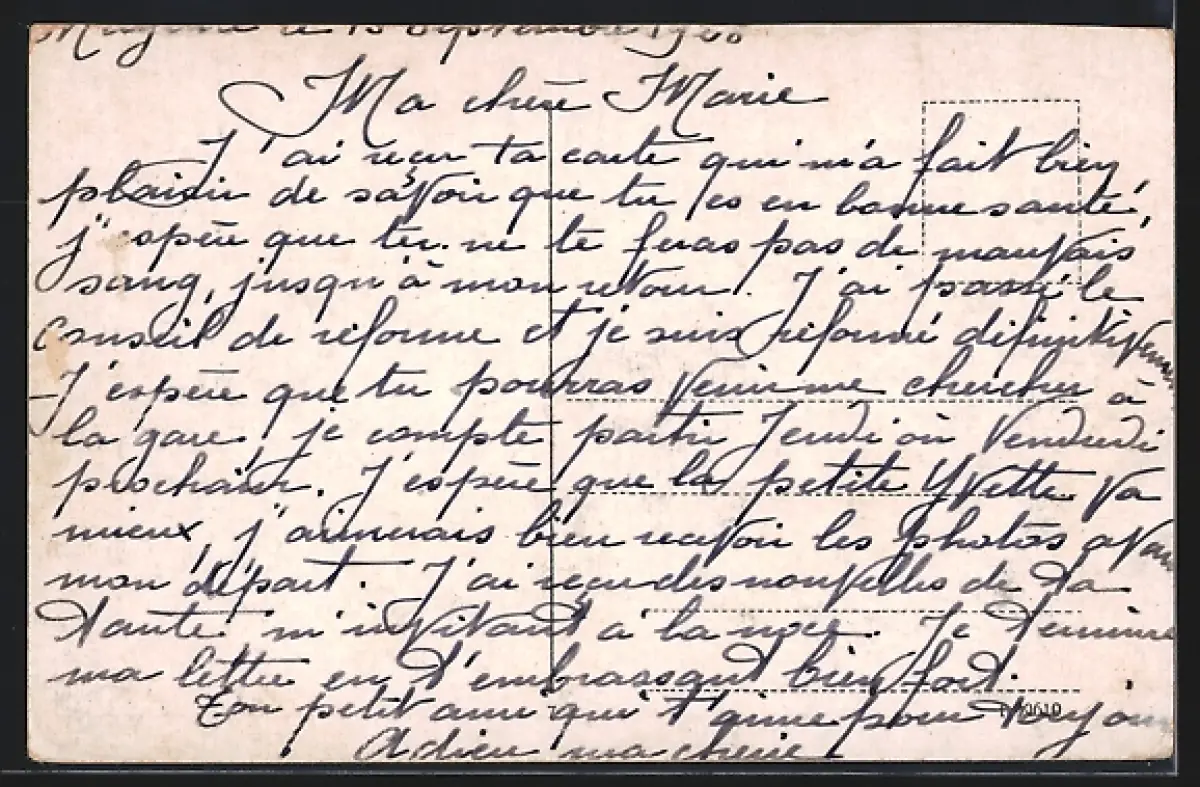 le 13 Septembre
Ma chère Marie
J'ai reçu ta carte qui m'a fait bien
plaisir de savoir que tu es en bonne santé,
j'espère que tu ne te feras pas de mauvais
sang, jusqu'à mon retour. J'ai passé le
Conseil de réforme et je suis réformé définitivement
J'espère que tu pourras venir me chercher à
la gare, je compte partir Jeudi où Vendredi
prochain. J'espère que la petite Yvette va
mieux, j'aimerais bien recevoir les photos avant
mon départ. J'ai reçu des nouvelles de ta
tante m'invitant à la noce. Je termine
ma lettre en t'embrassant bien fort.
Ton petit ami qui t'aime pour toujours
Adieu ma cherie